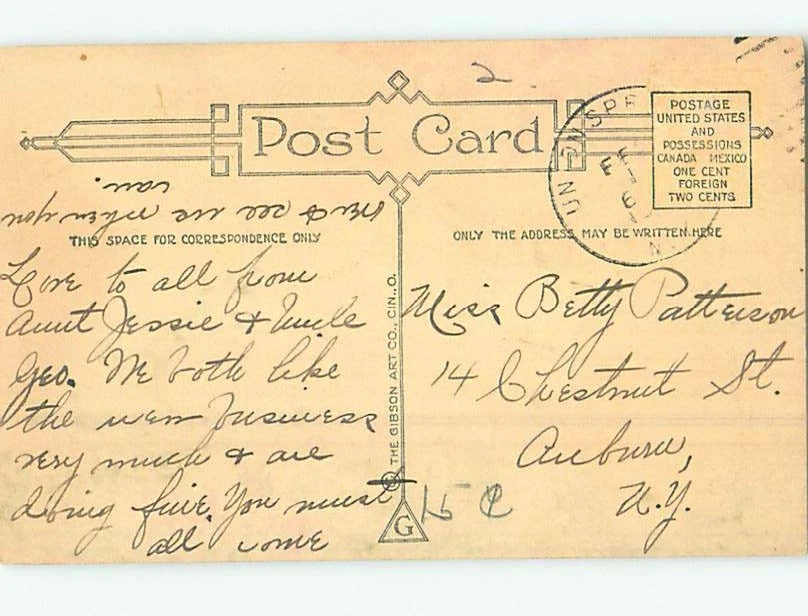 2
Post Card
POSTAGE
UNITED STATES
AND
POSSESSIONS
CANADA MEXICO
ONE CENT
FOREIGN
TWO CENTS
UNION SPR
F
THIS SPACE FOR CORRESPONDENCE ONLY
ONLY THE ADDRESS MAY BE WRITTEN HERE
Love to all from
Aunt Jessie & Uncle
Geo. We both like
the new business
very much & are
doing fine. You must
all come
over & see us when you
can.
THE GIBSON ART CO., CIN., O.
G
Miss Betty Patterson
14 Chestnut St.
Auburn,
N.Y.
15¢